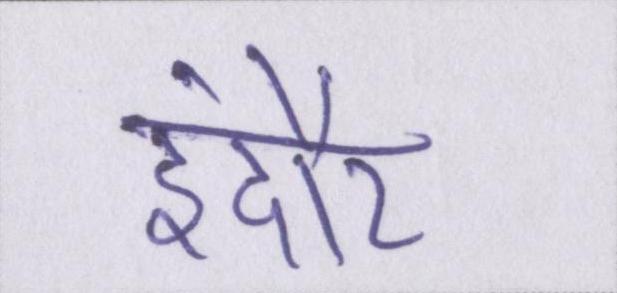 इंदौर